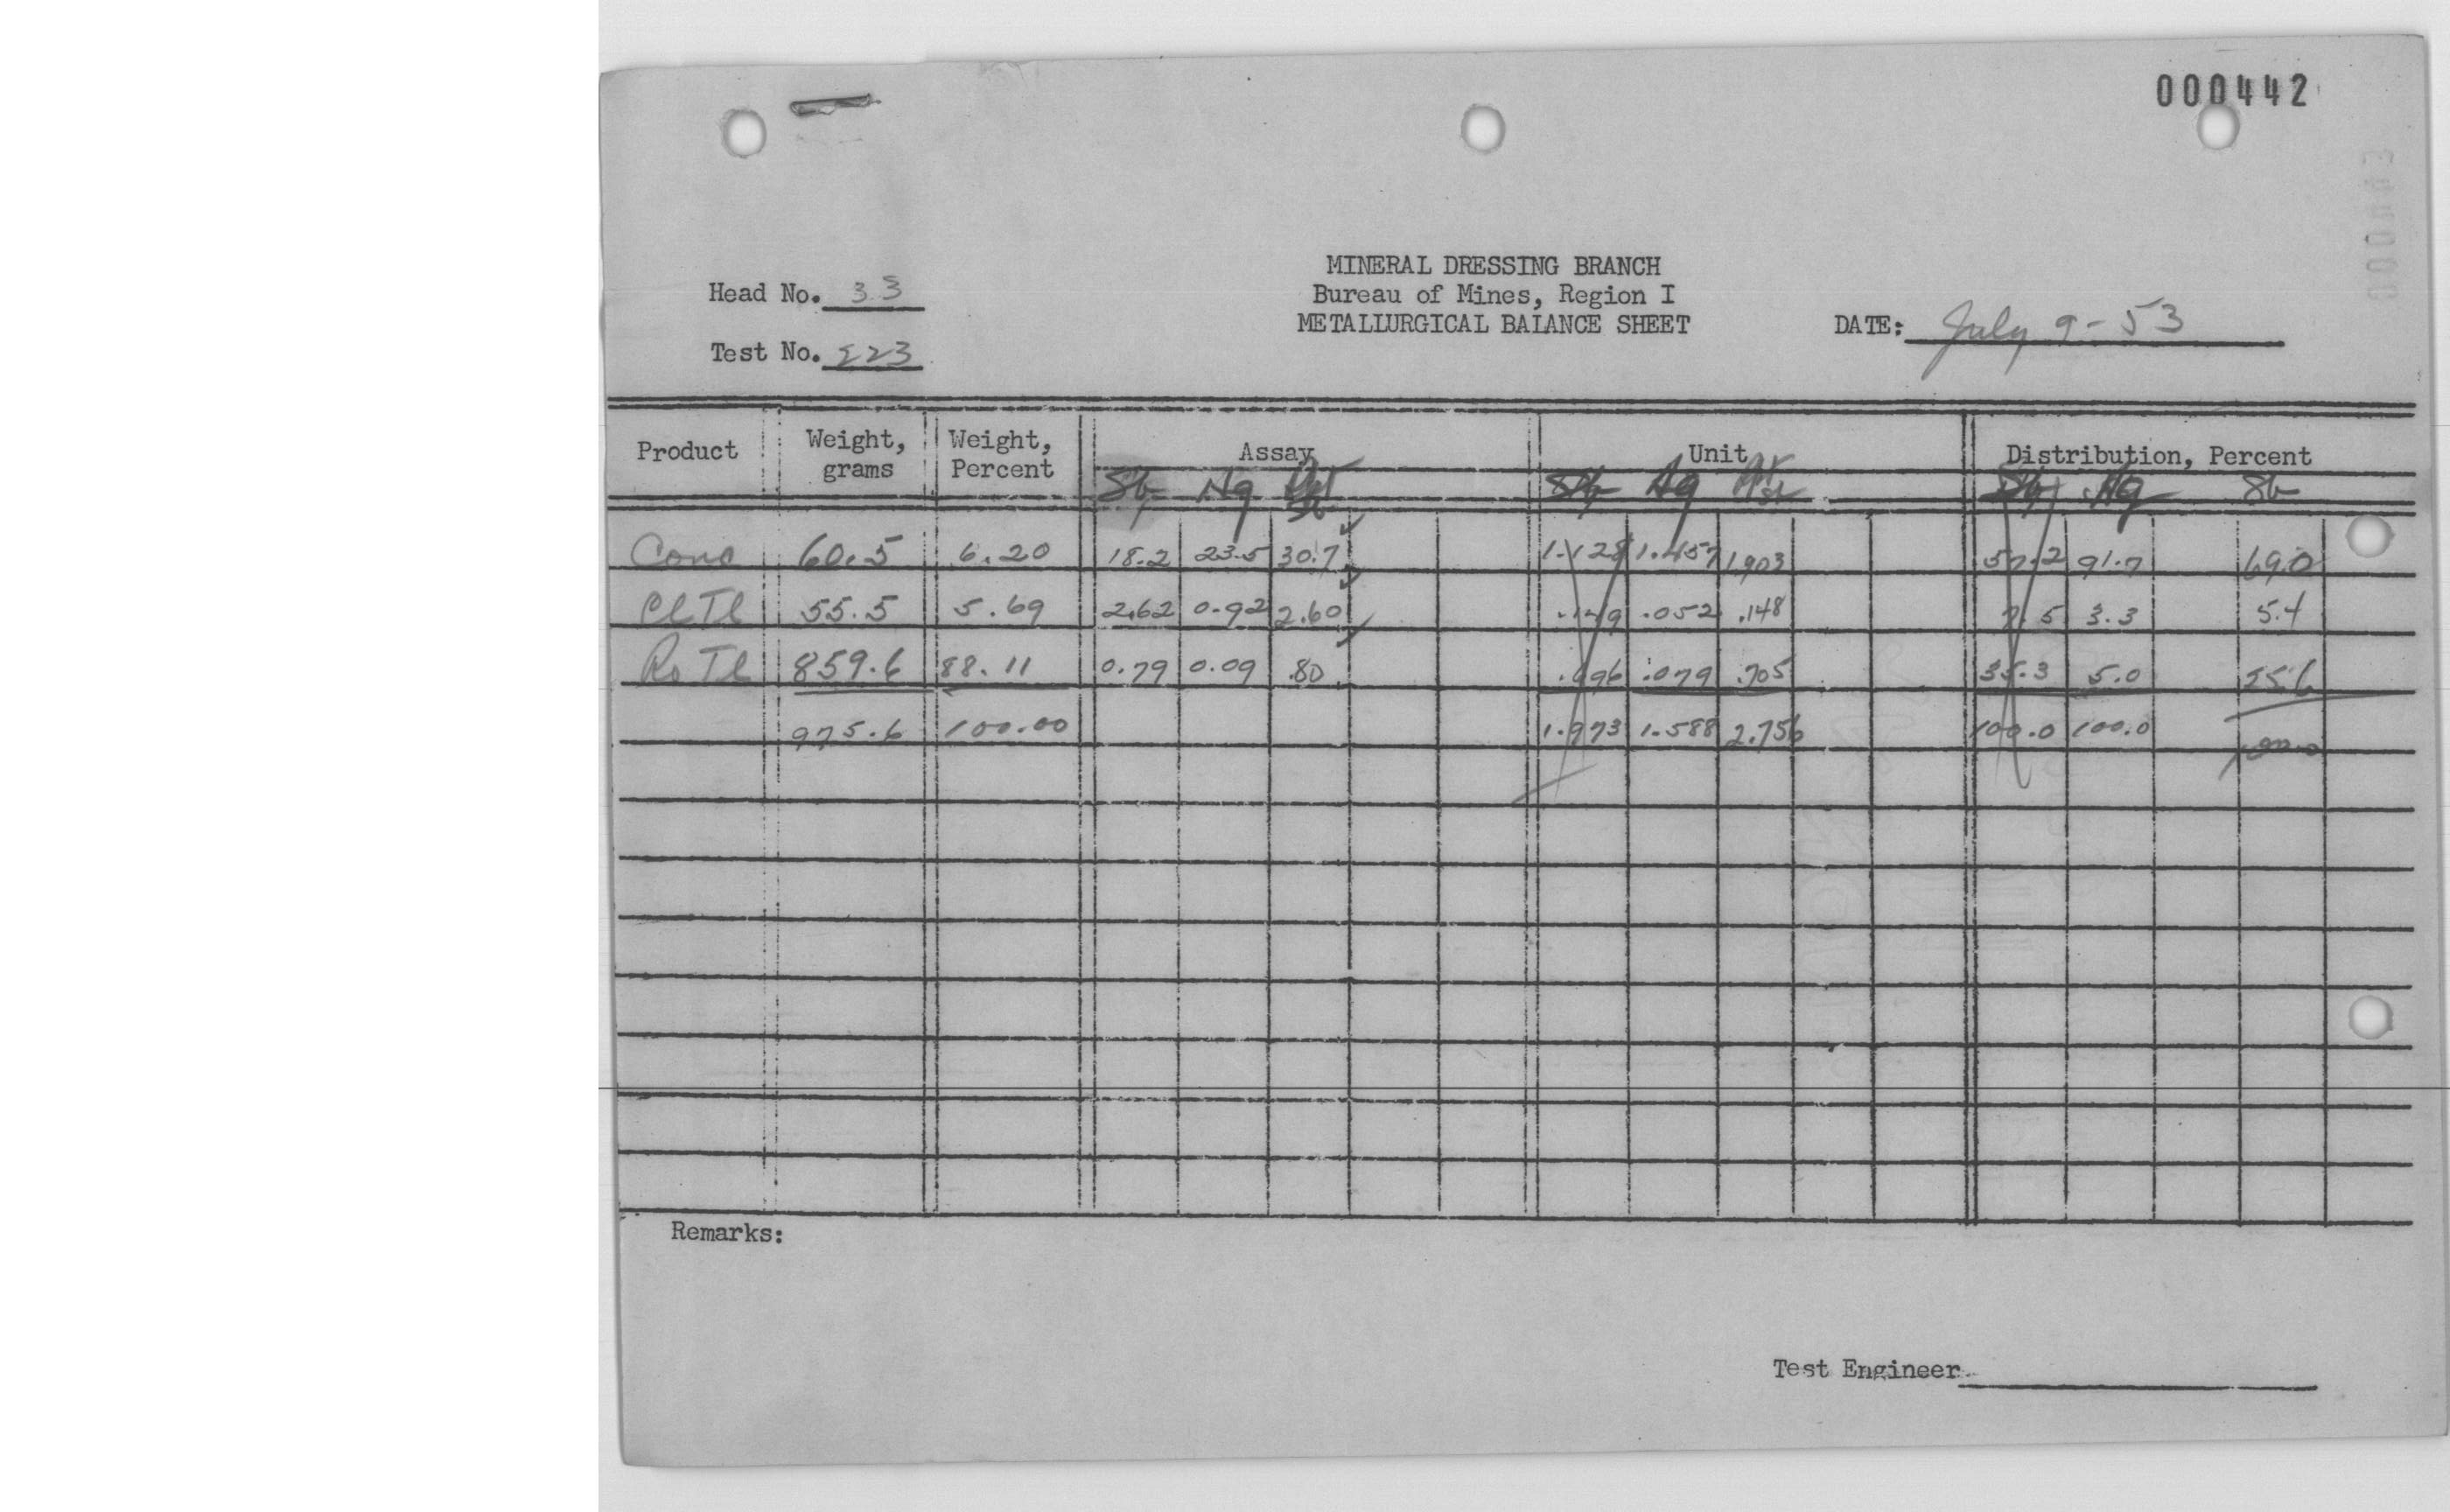 000442
MINERAL DRESSING BRANCH
Head No. 33 Bureau of Mines, Region I
METALLURGICAL BALANCE SHEET DATE: July 9-53
Test No. 223
Product Weight, grams Weight, Percent Assay Unit Distribution, Percent
Sb Hg Sb Hg Sb Hg Sb
Conc 60.5 6.20 18.2 23.5 30.7 1.128 1.457 1.903 57.2 91.7 69.0
Cl Tl 55.5 5.69 2.62 0.92 2.60 .149 .052 .148 7.5 3.3 5.4
Ro Tl 859.6 88.11 0.79 0.09 .80 .696 .079 .705 35.3 5.0 25.6
975.6 100.00 1.973 1.588 2.756 100.0 100.0 100.0
Remarks:
Test Engineer